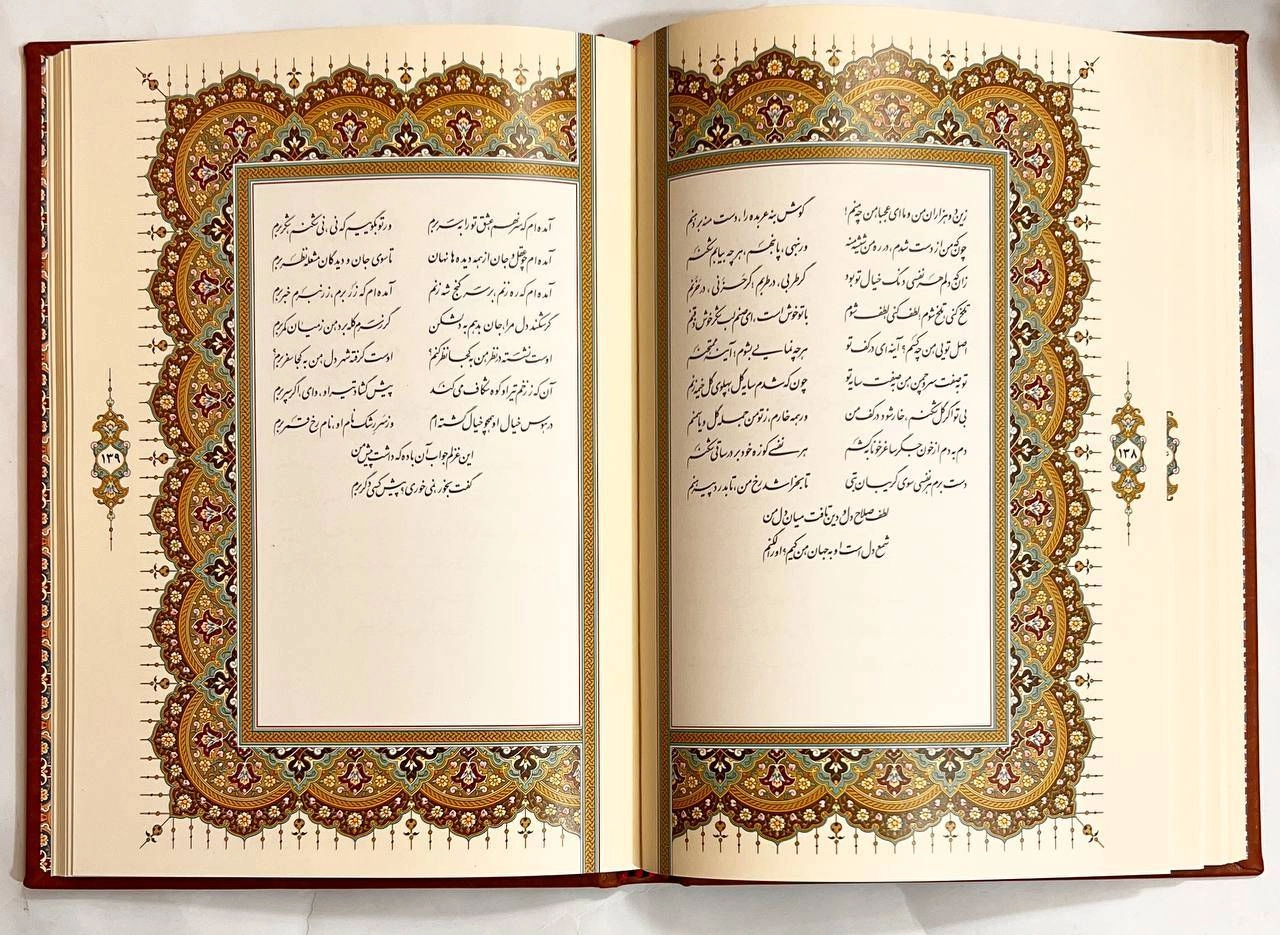 زین دو هزاران من و ما ای عجبا من چه منم! گوش بنه عربده را، دست منه بر دهنم
چون که من از دست شدم، در ره من شیشه منه ور بنهی، پا بنهم، هر چه بیابم شکنم
زان که دلم هر نفسی دنگ خیال تو بود گر طربی، در طربم، گر حزنی، در حزنم
تلخ کنی تلخ شوم، لطف کنی لطف شوم با تو خوش است، ای صنم لب شکر خوش ذقنم
اصل تویی من چه کسم؟ آینه ای در کف تو هر چه نمایی بشوم، آینه ممتحنم
تو به صفت سرو چمن من به صفت سایه تو چون که شدم سایه گل پهلوی گل خیمه زنم
بی تو اگر گل شکنم، خار شود در کف من ور همه خارم، ز تو من جمله گل و یاسمنم
دم به دم از خون جگر ساغر خونابه کشم هر نفسی کوزه خود بر در ساقی شکنم
دست برم هر نفسی سوی گریبان بتی تا بخراشد رخ من، تا بدرد پیرهنم
لطف صلاح دل و دین تافت میان دل من
شمع دل است او به جهان من کیم؟ او را لگنم
۱۳۸
آمده ام که سر نهم عشق تو را به سر برم ور تو بگوییم که نی، نی شکنم شکر برم
آمده ام چو عقل و جان از همه دیده ها نهان تا سوی جان و دیدگان مشعله نظر برم
آمده ام که ره زنم بر سر گنج شه زنم آمده ام که زر برم، زر نبرم خبر برم
گر شکند دل مرا، جان بدهم به دلشکن گر ز سرم کله برد من ز میان کمر برم
اوست نشسته در نظر من به کجا نظر کنم؟ اوست گرفته شهر دل من به کجا سفر برم
آن که ز زخم تیر او کوه شکاف می کند پیش گشاد تیر او، وای، اگر سپر برم
در هوس خیال او همچو خیال گشته ام وز سر رشک نام او، نام رخ قمر برم
این غزلم جواب آن باده که داشت پیش من
گفت بخور نمی خوری؟ پیش کسی دگر برم
۱۳۹